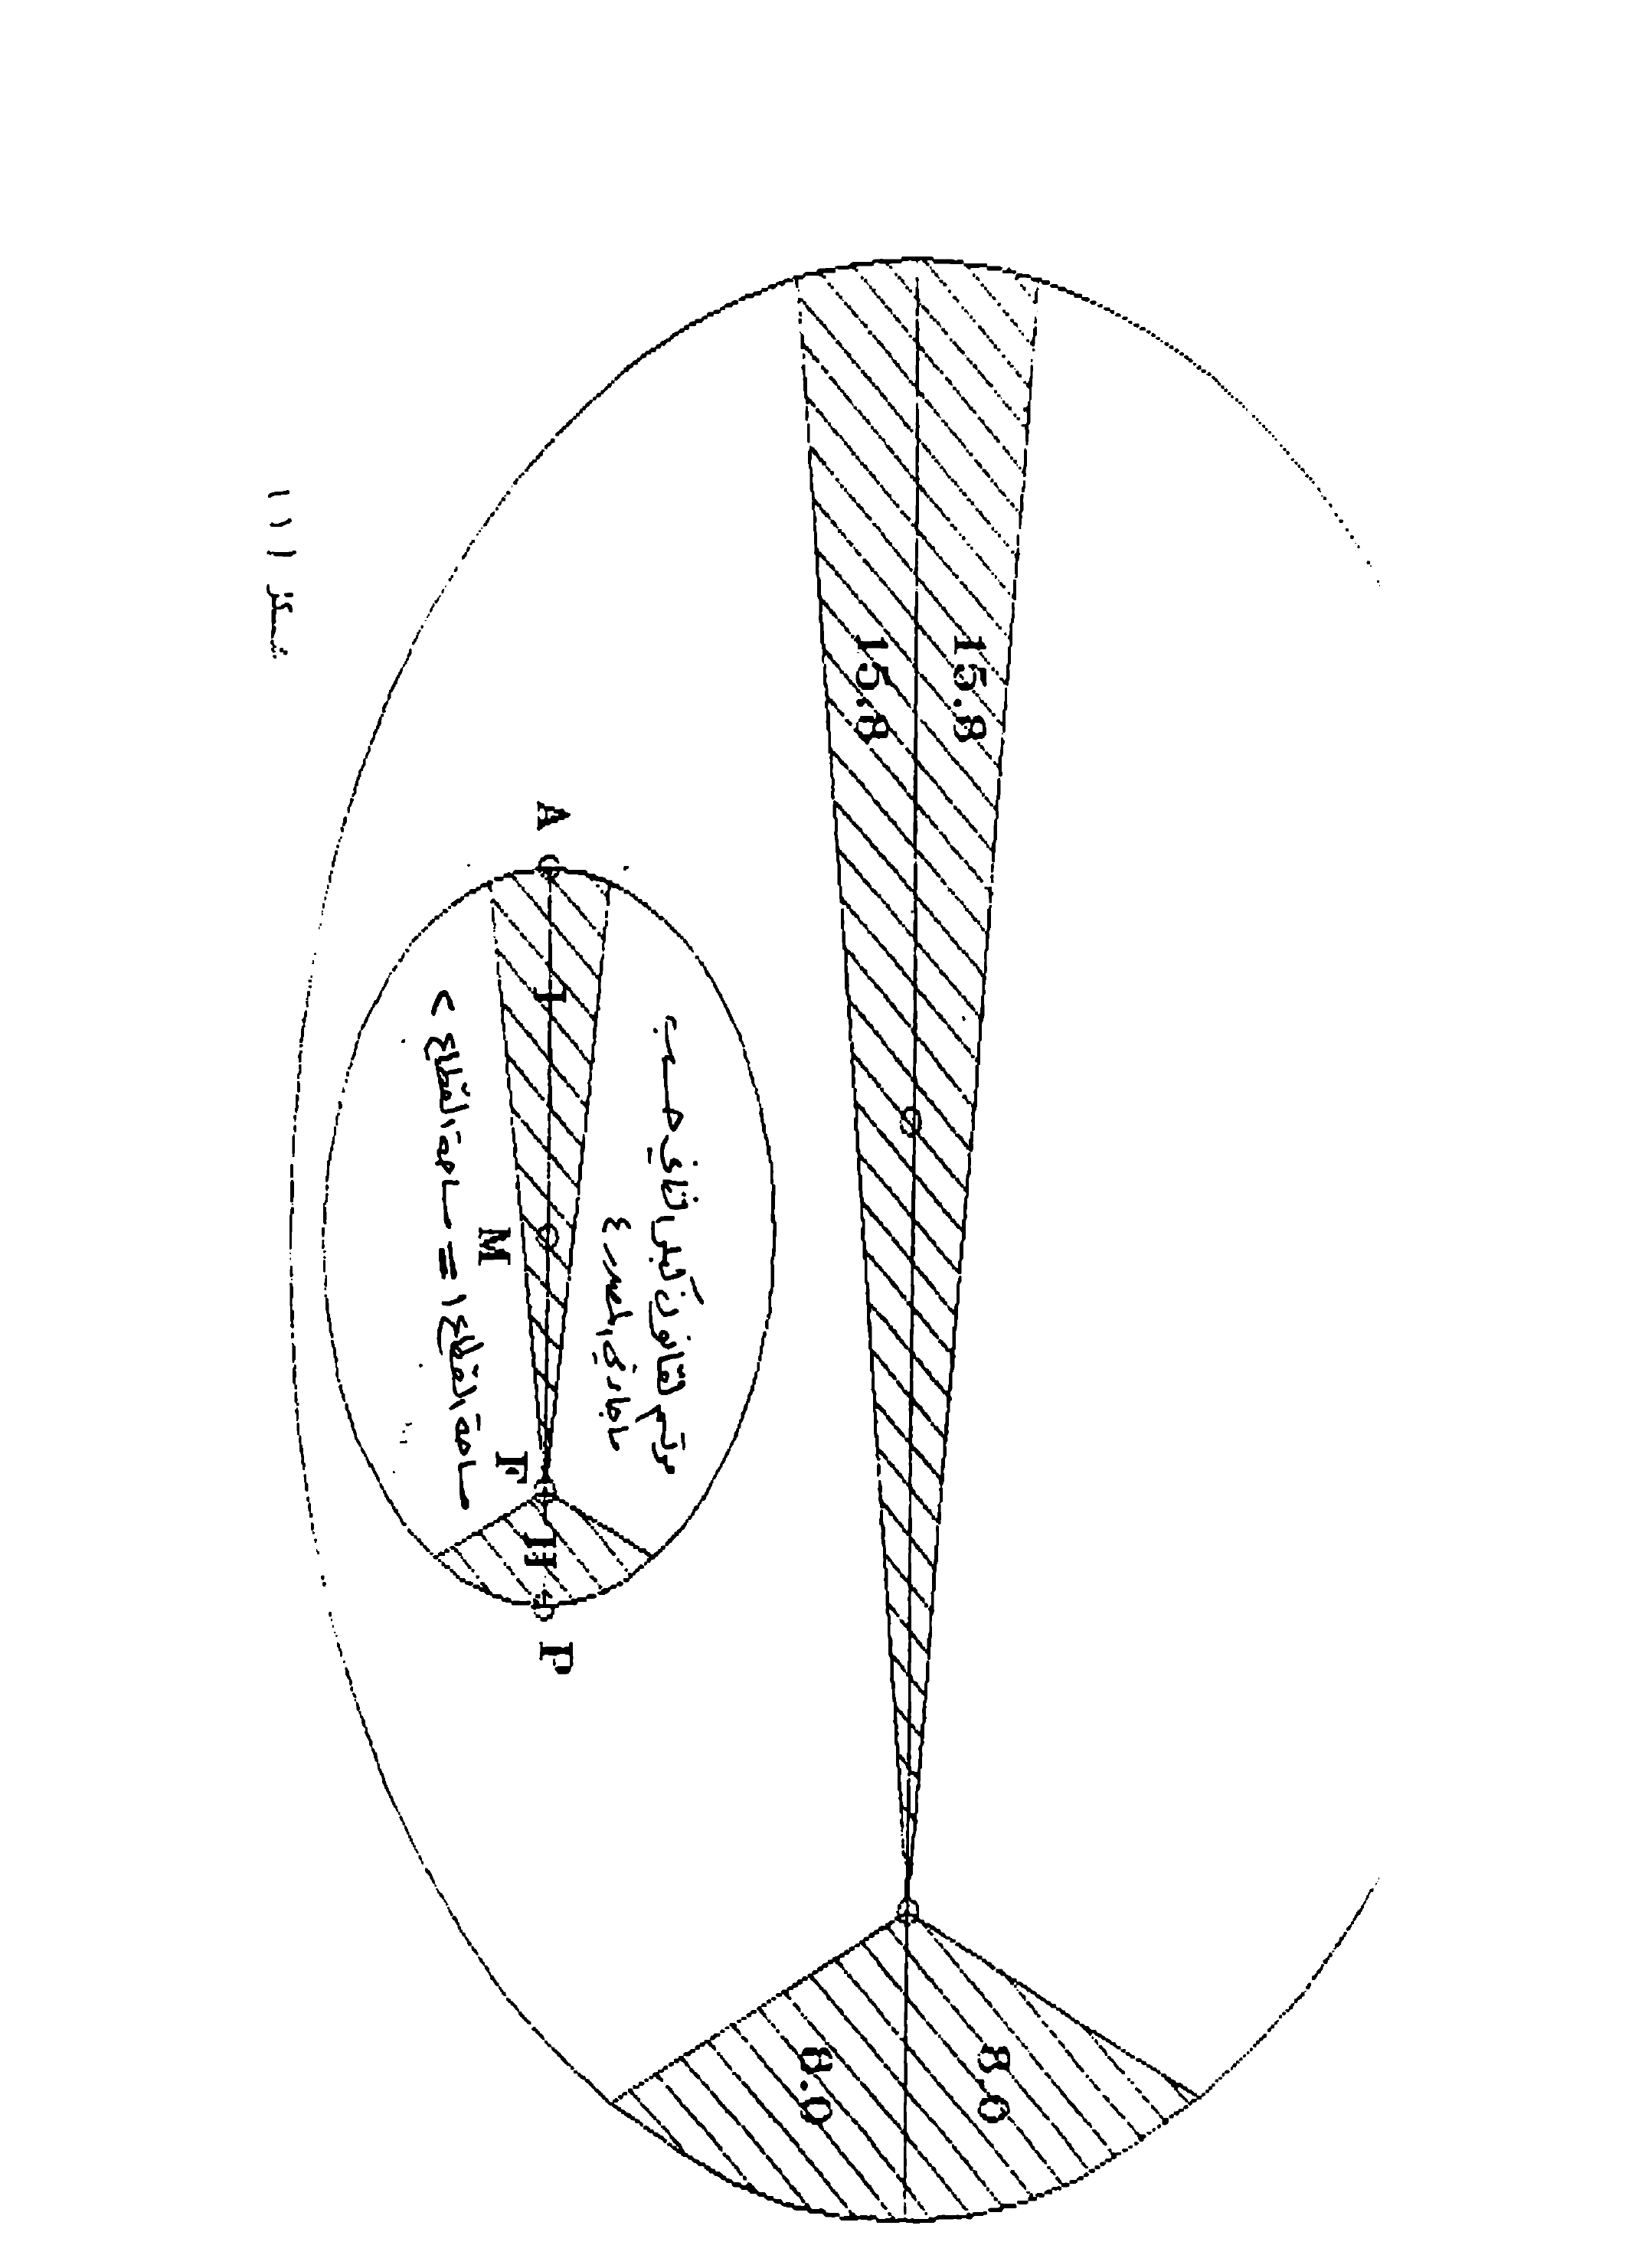 15.8
15.8
8.0
8.0
رسم لقانون كبلر الثاني حسب
ما جاء في المصدر ٤
A
I
M
F
II
P
مساحة القطاع ١ = مساحة القطاع ٢
شكل ١١١